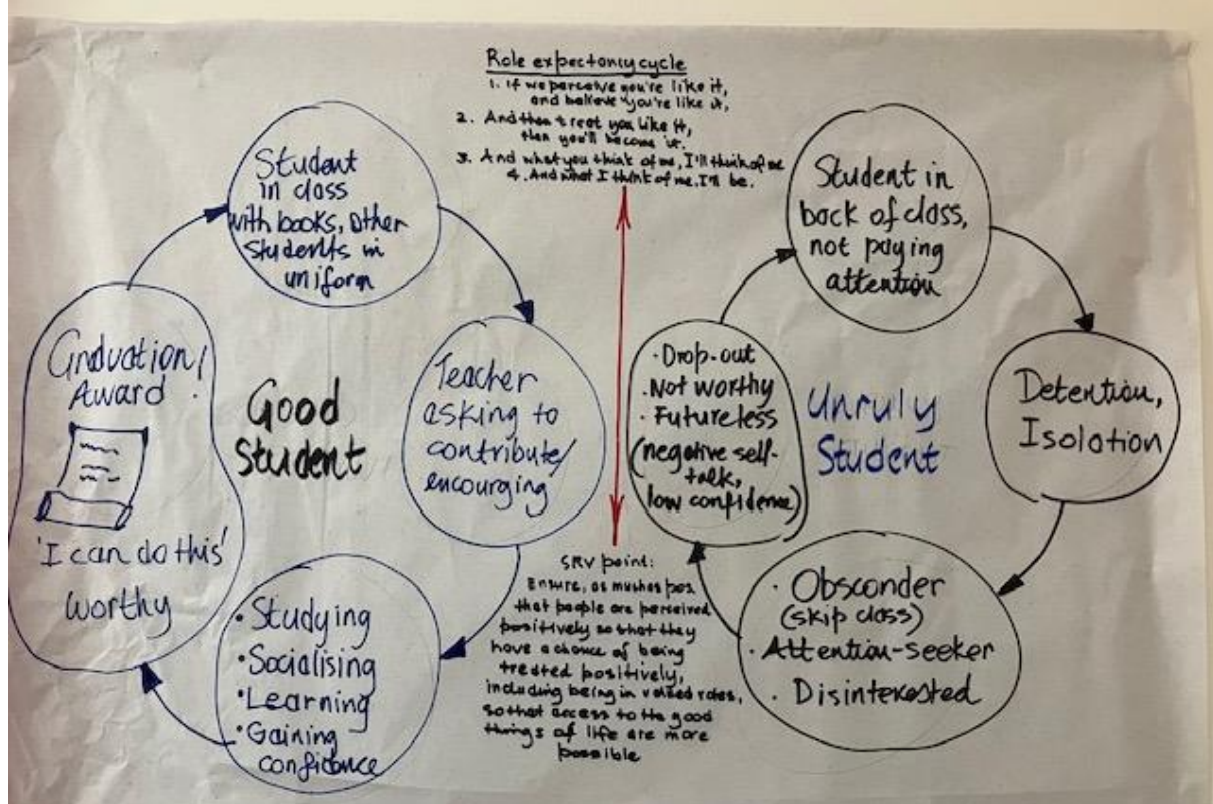 Role expectancy cycle
1. If we perceive you're like it,
and believe you're like it,
2. And then treat you like it,
then you'll become it.
3. And what you think of me, I'll think of me
4. And what I think of me, I'll be.
Student
in class
with books, other
students in
uniform
Teacher
asking to
contribute/
encourging
• Studying
• Socialising
• Learning
• Gaining
confidence
Graduation/
Award
'I can do this'
worthy
Good
Student
Student in
back of class,
not paying
attention
Detention,
Isolation
• Obsconder
(skip class)
• Attention-seeker
• Disinterested
• Drop-out
• Not worthy
• Futureless
(negative self-
talk,
low confidence)
Unruly
Student
SRV point:
Ensure, as much as pos
that people are perceived
positively so that they
have a chance of being
treated positively,
including being in valued roles,
so that access to the good
things of life are more
possible